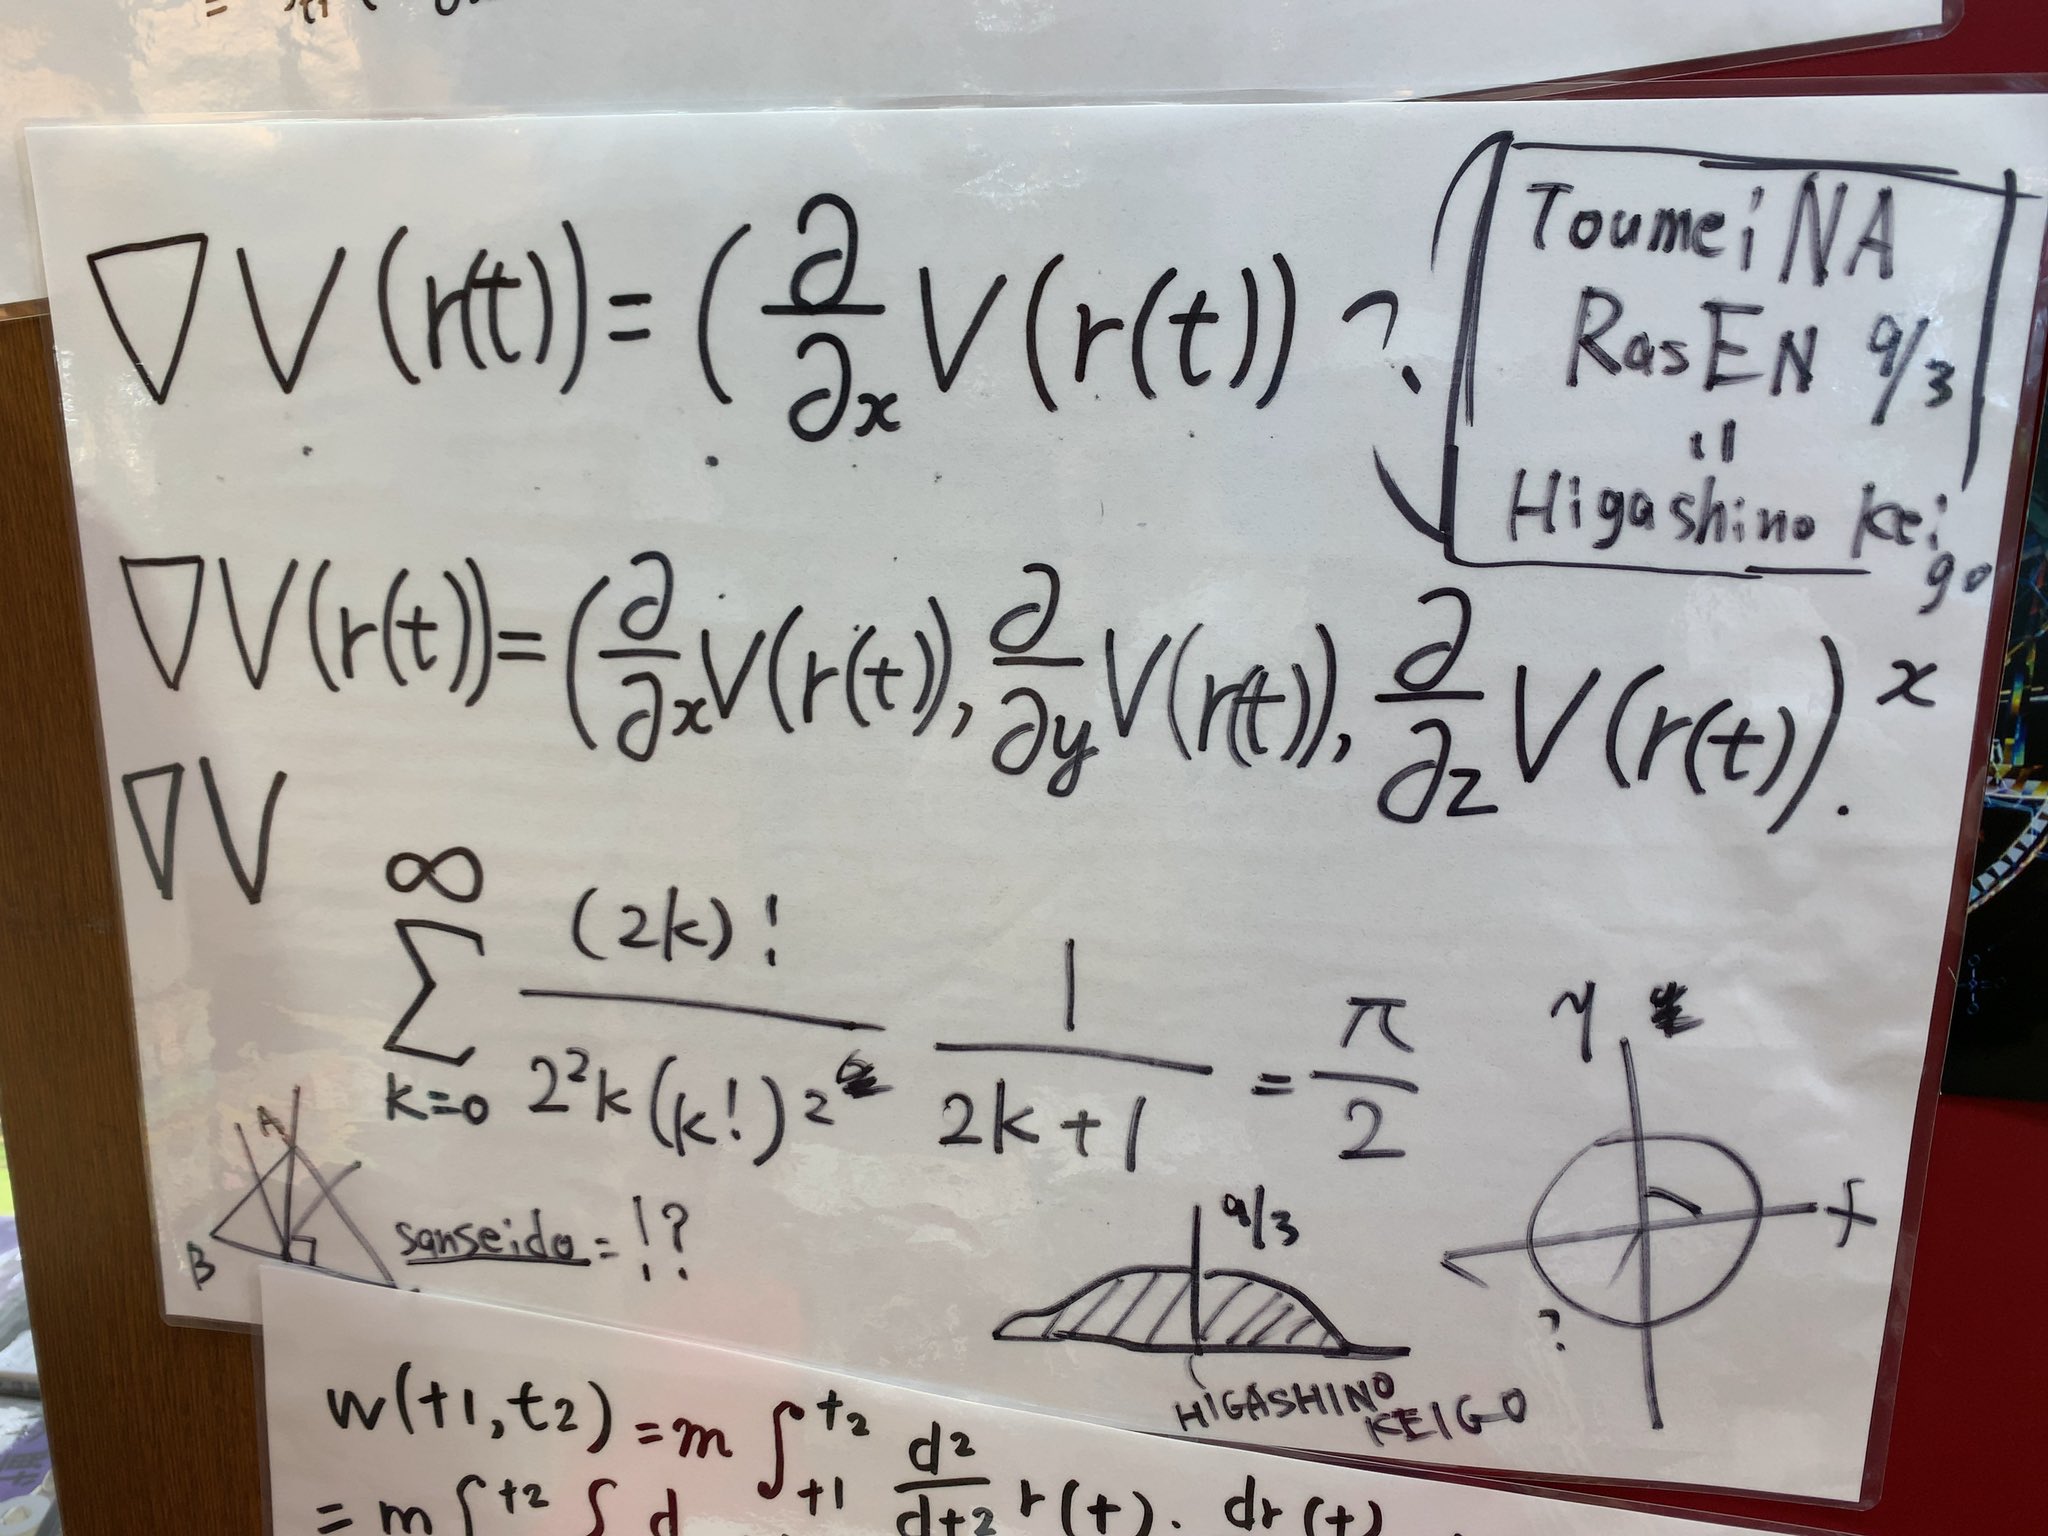 ∇V(r(t))=(∂/∂x V(r(t))?
ToumeiNA
RasEN 9/3
=
Higashino Keigo
∇V(r(t))=(∂/∂x V(r(t)), ∂/∂y V(r(t)), ∂/∂z V(r(t))). x
∇V
∞
∑ (2k)! / 2²k(k!)2 1 / 2k+1 = π/2
k=0
y
f
?
A
B
sanseido=!?
9/3
HIGASHINO
KEIGO
w(t1,t2)=m∫t2 t1 d2/dt2 r(t). dr(t)
=m∫t2 ∫ d